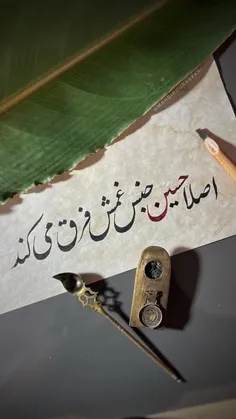 اصلا حسین جنس غمش فرق می کند